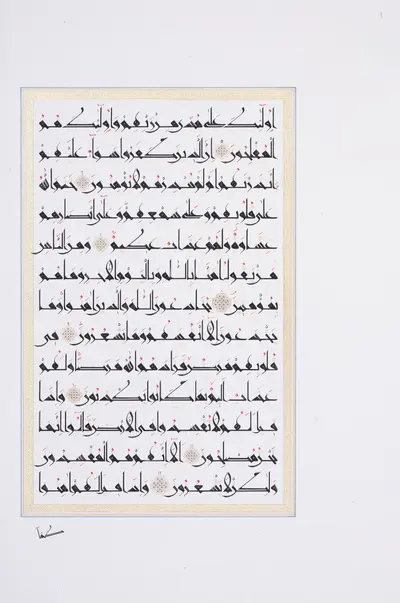 أولئك على هدى من ربهم وأولئك هم
المفلحون إن الذين كفروا سواء عليهم
ءأنذرتهم أم لم تنذرهم لا يؤمنون ختم الله
على قلوبهم وعلى سمعهم وعلى أبصارهم
غشاوة ولهم عذاب عظيم ومن الناس
من يقول آمنا بالله وباليوم الآخر وما هم
بمؤمنين يخادعون الله والذين آمنوا وما
يخدعون إلا أنفسهم وما يشعرون في
قلوبهم مرض فزادهم الله مرضا ولهم
عذاب أليم بما كانوا يكذبون وإذا
قيل لهم لا تفسدوا في الأرض قالوا إنما
نحن مصلحون ألا إنهم هم المفسدون
ولكن لا يشعرون وإذا قيل لهم آمنوا
كما